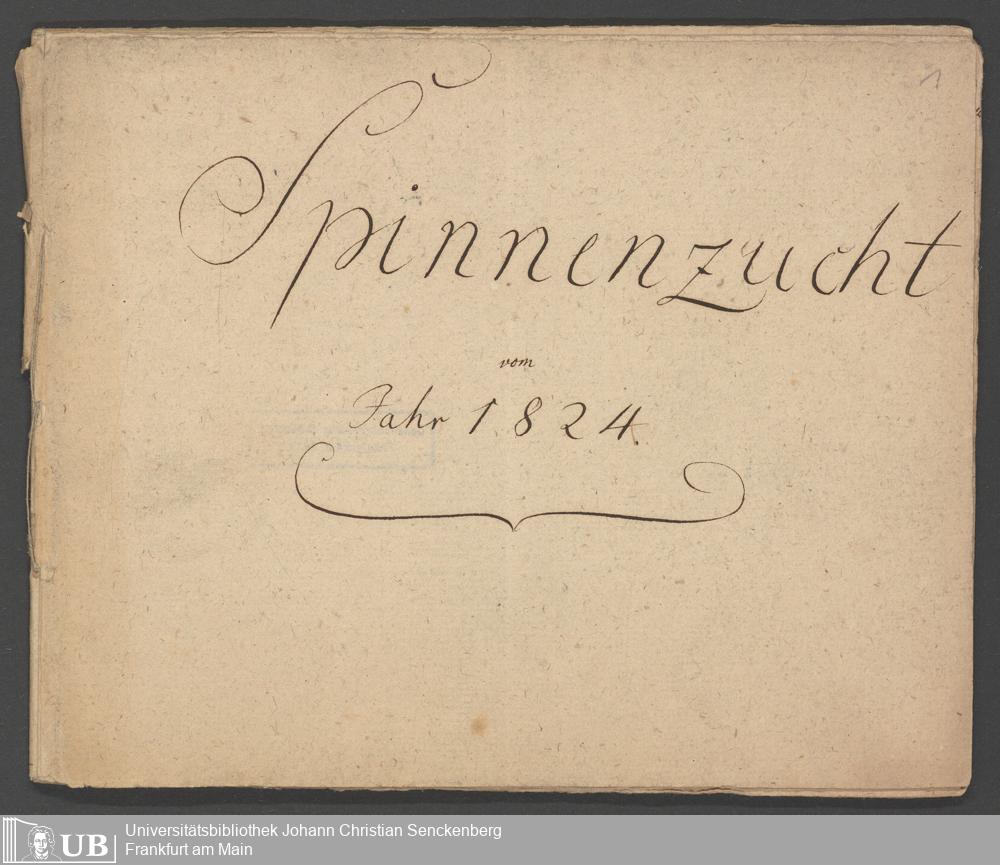 1
Spinnenzucht
vom
Jahr 1824.
UB
Universitätsbibliothek Johann Christian Senckenberg
Frankfurt am Main